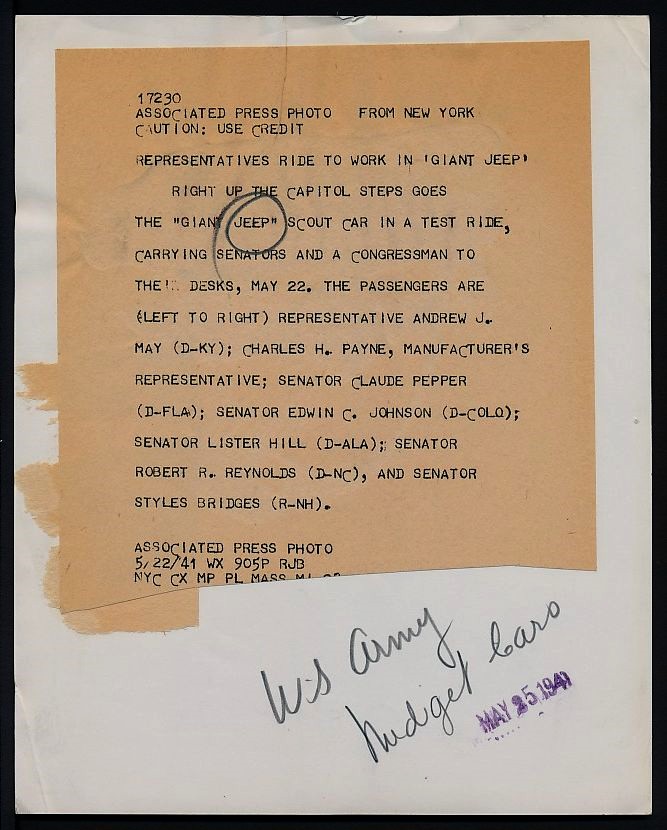 17230
ASSOCIATED PRESS PHOTO FROM NEW YORK
CAUTION: USE CREDIT
REPRESENTATIVES RIDE TO WORK IN 'GIANT JEEP'
RIGHT UP THE CAPITOL STEPS GOES
THE "GIANT JEEP" SCOUT CAR IN A TEST RIDE,
CARRYING SENATORS AND A CONGRESSMAN TO
THEIR DESKS, MAY 22. THE PASSENGERS ARE
(LEFT TO RIGHT) REPRESENTATIVE ANDREW J.
MAY (D-KY); CHARLES H. PAYNE, MANUFACTURER'S
REPRESENTATIVE; SENATOR CLAUDE PEPPER
(D-FLA); SENATOR EDWIN C. JOHNSON (D-COLO);
SENATOR LISTER HILL (D-ALA); SENATOR
ROBERT R. REYNOLDS (D-NC), AND SENATOR
STYLES BRIDGES (R-NH).
ASSOCIATED PRESS PHOTO
5/22/41 WX 905P RJB
NYC CX MP PL MASS
US Army
Midget Cars
MAY 25 1941